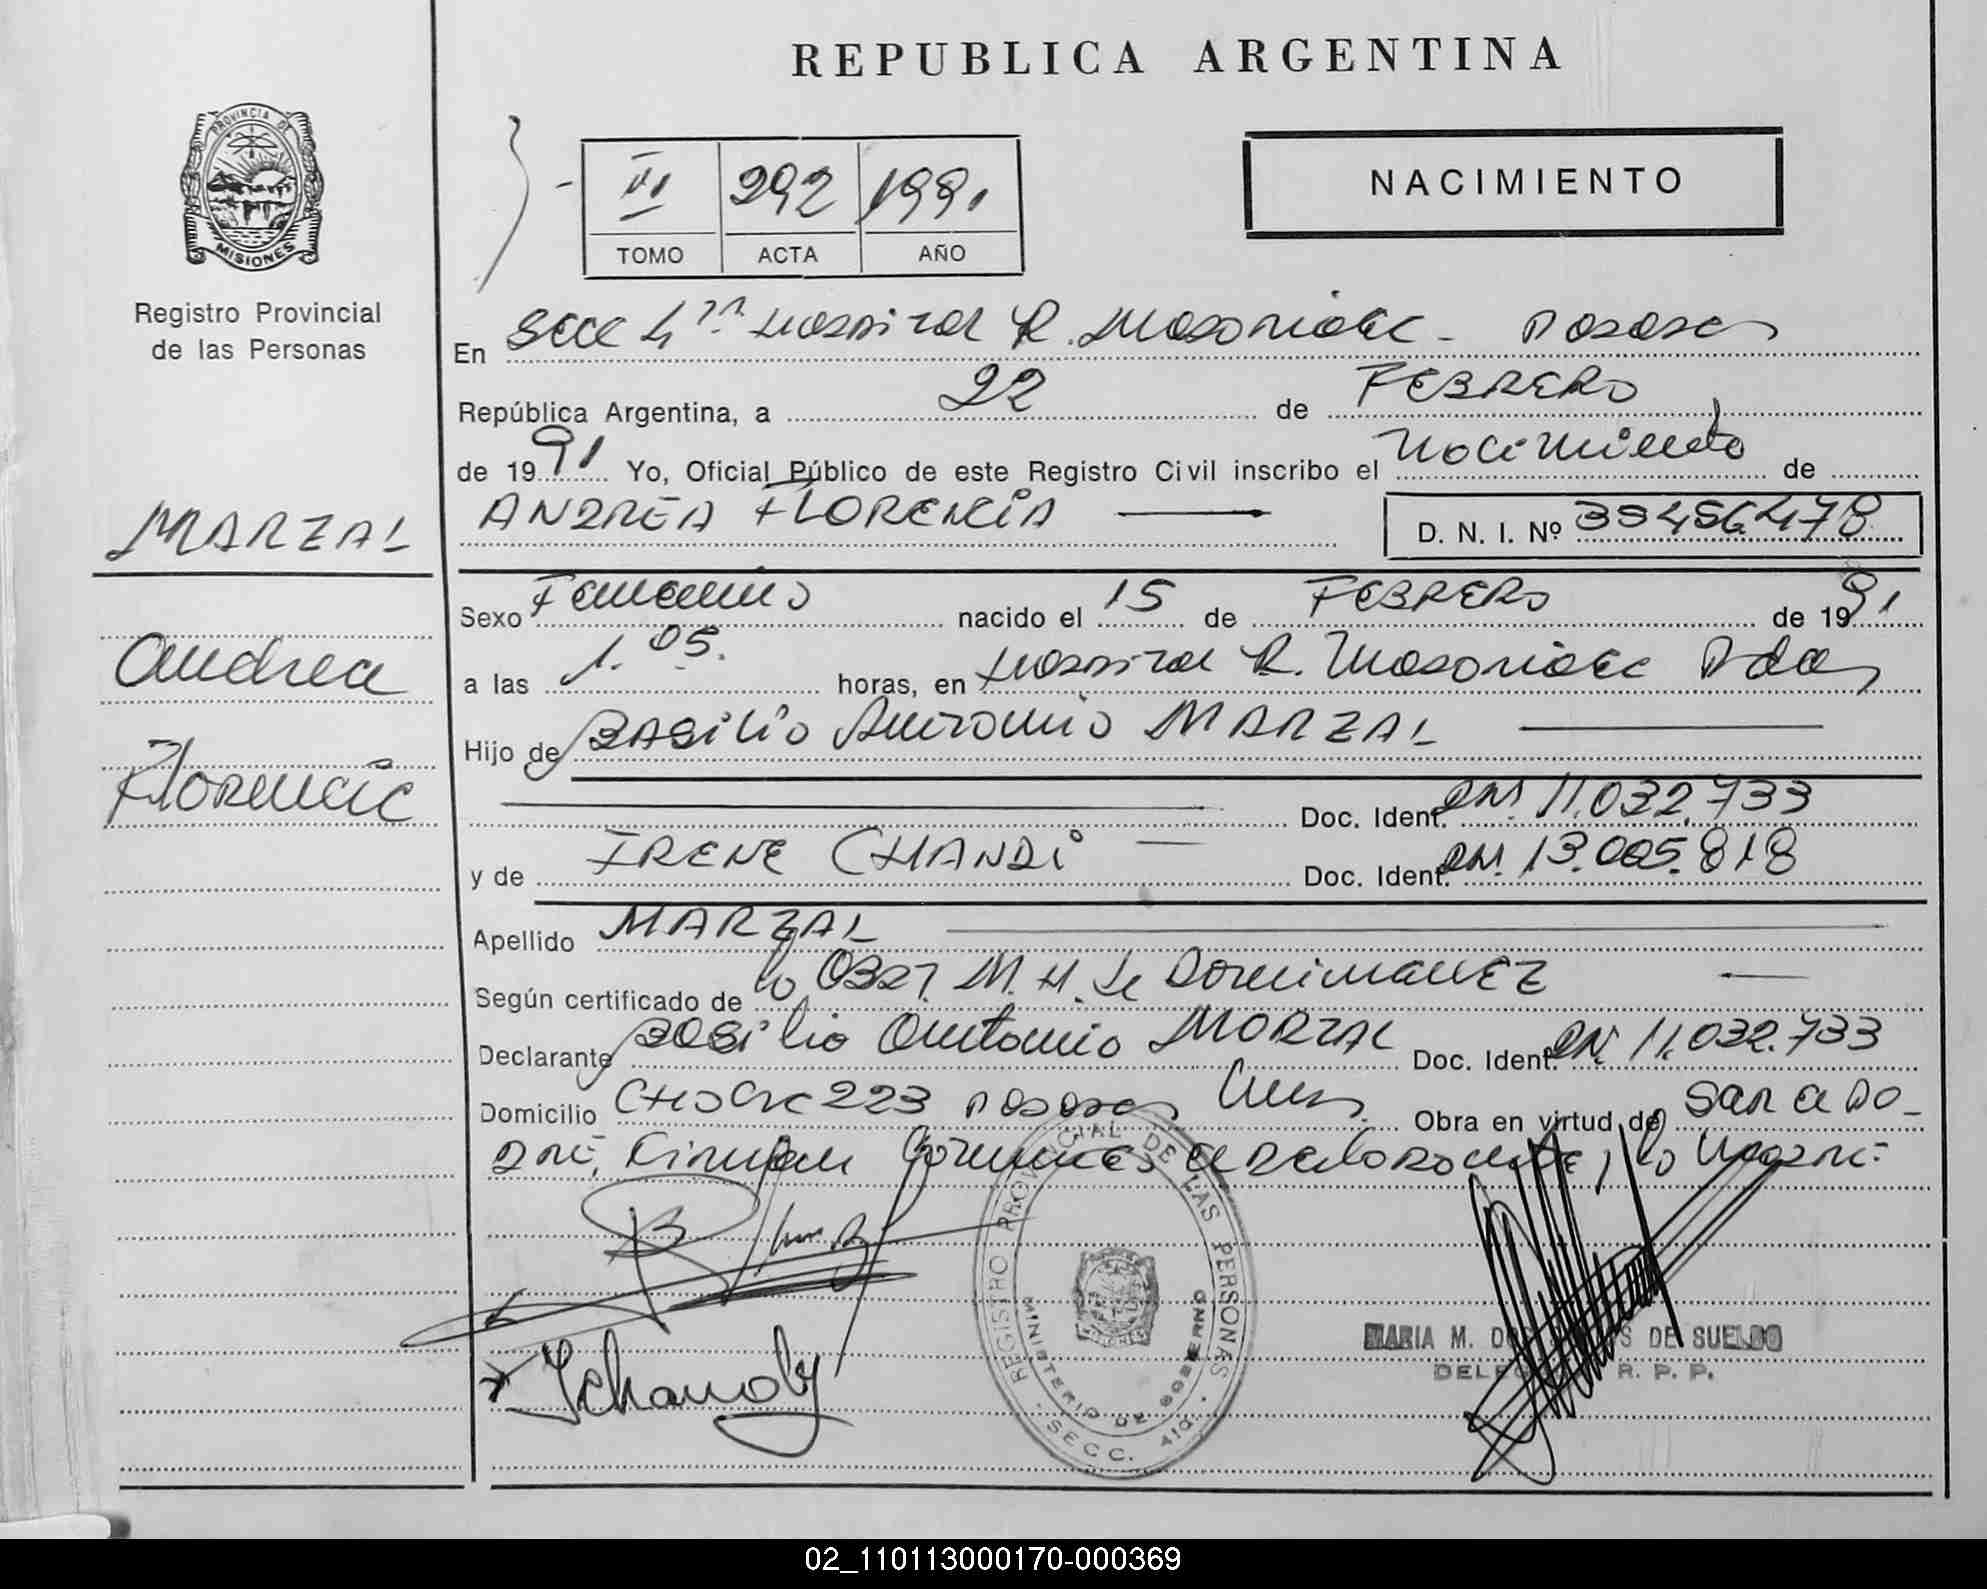 REPUBLICA ARGENTINA
PROVINCIA DE
MISIONES
Registro Provincial
de las Personas
292 1991
TOMO ACTA AÑO
NACIMIENTO
En Secc 4ta Hospital R. Madariaga - Posadas
República Argentina, a 22 de FEBRERO
de 1991 Yo, Oficial Público de este Registro Civil inscribo el Nacimiento de
MARZAL
ANDREA FLORENCIA D. N. I. Nº 35.456.478
Sexo Femenino nacido el 15 de FEBRERO de 1991
Andrea
a las 1.05. horas, en Hospital R. Madariaga Pdas
Hijo de BASiLiO Antonio MARZAL
Florencia
Doc. Ident. DNI 11.032.733
y de IRENE CHANDi Doc. Ident. DNI. 13.005.818
Apellido MARZAL
Según certificado de la Obst. M. H. de
Declarante Basilio Antonio MARZAL Doc. Ident. DNI. 11.032.733
Domicilio 223 Posadas Obra en virtud de ser el pa-
dre, Firman el declarante, la madre
REGISTRO PROVINCIAL DE LAS PERSONAS
MINISTERIO DE GOBIERNO
SECC. 4ta.
MARIA M. DE SUELDO
R. P. P.
IChandy
02_110113000170-000369